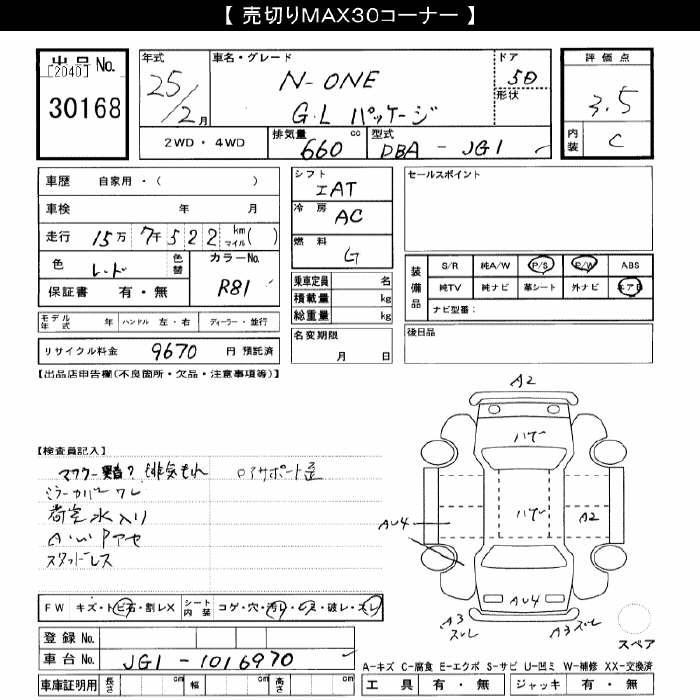 【 売切りMAX30コーナー 】
出品 No.
[2040]
30168
年式
25/2月
車名・グレード
N-ONE
G・L パッケージ
ドア
5D
形状
2WD・4WD
排気量
660 cc
型式
DBA - JG1
評価点
3.5
内装
C
車歴 自家用・( )
車検 年 月
走行 15万 7千 5 2 2 km マイル( )
色
レッド
色替
カラーNo.
R81
保証書 有・無
モデル年式 年 ハンドル 左・右 ディーラー・並行
リサイクル料金 9670 円 預託済
シフト
IAT
冷房
AC
燃料
G
乗車定員 名
積載量 kg
総重量 kg
名変期限
月 日
セールスポイント
装備品
S/R 純A/W P/S P/W ABS
純TV 純ナビ 革シート 外ナビ エアB
ナビ型番:
後日品
【出品店申告欄(不良箇所・欠品・注意事項等)】
【検査員記入】
マフラー 排気もれ
ロアサポート歪
ミラーカバー ワレ
荷室水入り
A/W
スタッドレス
FW キズ・トビ石・割レX
シート内装 コゲ・穴・汚レ・シミ・破レ・スレ
登録 No.
車台 No. JG1-1016970
車庫証明用 長さ cm 幅 cm 高さ cm
A2
ハゲ
ハゲ
AU4
A2
AU4
A3
スレ
A3
スレ
スペア
A-キズ C-腐食 E-エクボ S-サビ U-凹ミ W-補修 XX-交換済
工具 有・無 ジャッキ 有・無